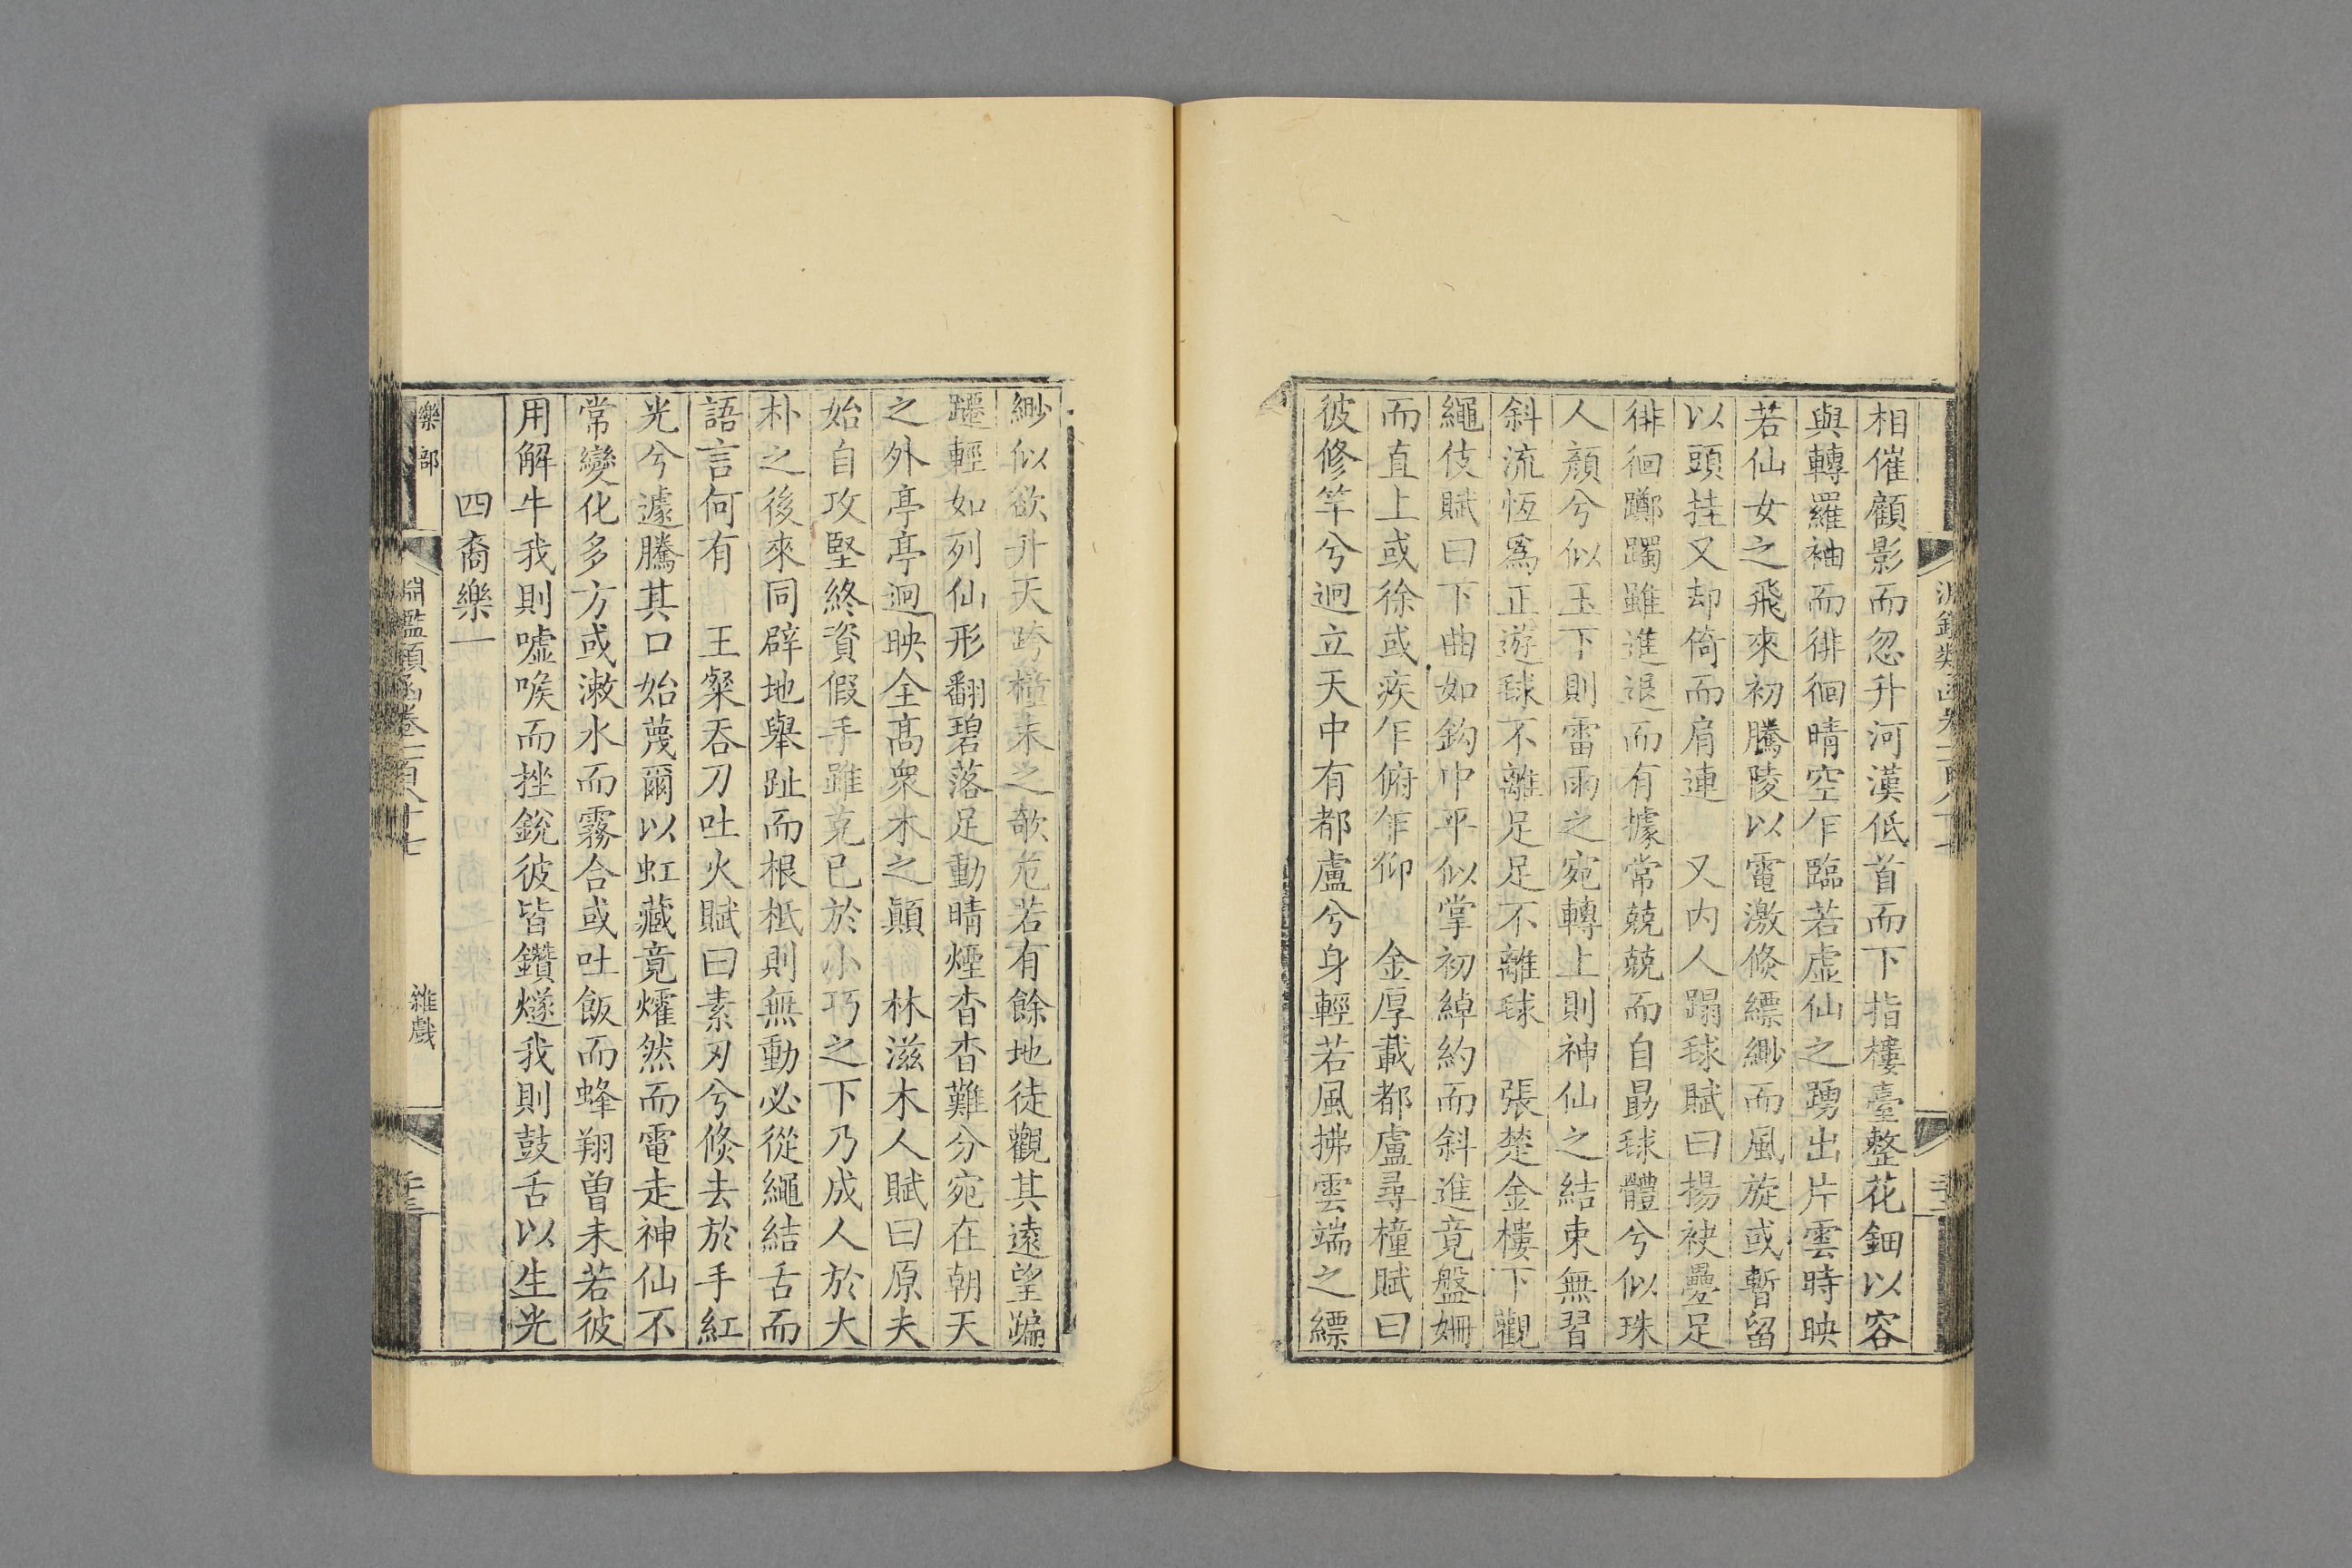 相催顧影而忽升河漢低首而下指樓臺整花鈿以容
與轉羅袖而徘徊晴空乍臨若虛仙之踴出片雲時映
若仙女之飛來初騰陵以電激倏縹緲而風旋或暫留
以頭挂又却倚而肩連　又内人蹋毬賦曰揚袂疊足
徘徊躑躅雖進退而有據常兢兢而自勗毬體兮似珠
人顏兮似玉下則雷雨之宛轉上則神仙之結束無習
斜流恆爲正遊毬不離足足不離毬　張楚金樓下觀
繩伎賦曰下曲如鈎中平似掌初綽約而斜進竟盤姍
而直上或徐或疾乍俯乍仰　金厚載都盧尋橦賦曰
彼修竿兮迥立天中有都盧兮身輕若風拂雲端之縹
緲似欲升天跨橦末之欹危若有餘地徒觀其遠望蹁
躚輕如列仙形翻碧落足動晴煙杳杳難分宛在朝天
之外亭亭迥映全高衆木之顚　林滋木人賦曰原夫
始自攻堅終資假手雖克已於小巧之下乃成人於大
朴之後來同辟地舉趾而根柢則無動必從繩結舌而
語言何有　王粲吞刀吐火賦曰素刃兮倏去於手紅
光兮遽騰其口始蔑爾以虹藏竟㸌然而電走神仙不
常變化多方或漱水而霧合或吐飯而蜂翔曾未若彼
用解牛我則噓喉而挫銳彼皆鑽燧我則鼓舌以生光
四裔樂一
樂部
淵鑑類函卷一百八十七
雜戲